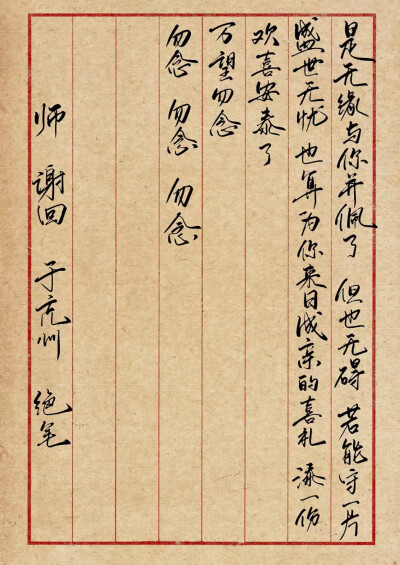 是无缘与你并佩了 但也无碍 若能守一片
盛世无忧 也算为你来日成亲的喜礼 添一份
欢喜安泰了
万望勿念
勿念 勿念 勿念
师 谢回 于亢州 绝笔